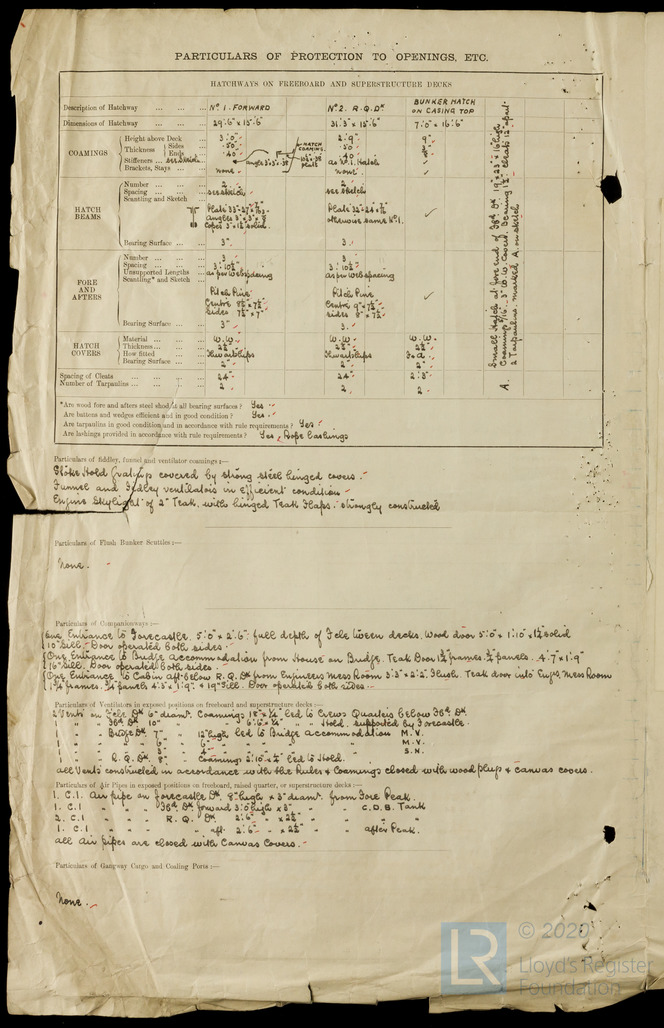 PARTICULARS OF PROTECTION TO OPENINGS, ETC.
HATCHWAYS ON FREEBOARD AND SUPERSTRUCTURE DECKS
Description of Hatchway ... ... ... No 1. FORWARD No 2. R.Q.Dk BUNKER HATCH ON CASING TOP
Dimensions of Hatchway ... ... ... 29'.6" x 15'.6" 31'.3" x 15'.6" 7'.0" x 16'.6"
COAMINGS
Height above Deck ... 3'.0" 2'.9"
Thickness Sides ... .50 .50
Ends ... .40 .40
Stiffeners ... see Sketch as No. 1. Hatch
Brackets, Stays ... ... none none
HATCH COAMING
HATCH BEAMS
Number ... ... ... 2 2
Spacing ... ... ... see sketch see sketch
Scantling and Sketch
otherwise same No 1.
Bearing Surface ... ... 3". 3.
FORE AND AFTERS
Number ... ... ... 3 3
Spacing ... ... ... 3'.10½" 3'.10½"
Unsupported Lengths as per Web spacing as per Web spacing
Scantling* and Sketch
Pitch Pine Pitch Pine
Centre Centre 9" x 7½"
Sides 7½" x 7" Sides 8" x 7½"
Bearing Surface ... ... 3" 3.
HATCH COVERS
Material ... ... ... W.W. W.W. W.W.
Thickness ... ... ... 2½" 2½" 2½"
How fitted ... ... Thwartships Thwartships F & A
Bearing Surface ... ... 2" 2" 2"
Spacing of Cleats ... ... ... ... 24" 24" 2'.3"
Number of Tarpaulins ... ... ... ... 2 2 2
A. Small Hatch at fore end of Fo'c'sle Dk 19" x 23" x 16" high
2 Tarpaulins marked A on sketch
*Are wood fore and afters steel shod at all bearing surfaces? Yes
Are battons and wedges efficient and in good condition? Yes
Are tarpaulins in good condition and in accordance with rule requirements? Yes
Are lashings provided in accordance with rule requirements? Yes, Rope Lashings
Particulars of fiddley, funnel and ventilator coamings :—
Stoke Hold Gratings covered by strong steel hinged covers.
Funnel and Fidley ventilators in Efficient condition
Engine Skylight of 2" Teak, with hinged Teak Flaps. strongly constructed
Particulars of Flush Bunker Scuttles :—
None.
Particulars of Companionways :—
One Entrance to Forecastle. 5'.0" x 2'.6". full depth of Tele tween decks. Wood door 5'.0" x 1'.10" x 1½" solid
10" Sill. Door operated both sides.
One Entrance to Bridge Accommodation from House on Bridge. Teak Door 1½" frames. ¾" panels. 4'.7" x 1'.9"
16" Sill. Door operated both sides.
One Entrance to Cabin aft below R.Q.Dk from Engineers Mess Room 3'.3" x 2'.2". Flush. Teak door into Engs. Mess Room
1¼" frames. ¾" panels 4'.3" x 1'.9". x 19" Sill. Door operated both sides.
Particulars of Ventilators in exposed positions on freeboard and superstructure decks :—
2 Vents on Fcle Dk 6" diamr. Coamings led to Crews Quarters below Fo'c'sle Dk.
1 " " Dk 10" " " " Hold. supported by Forecastle.
1 " " Bridge Dk 7" " 12" high led to Bridge accommodation M.V.
1 " " " 6" " 6" " M.V.
1 " " " 3" " 4" " S.N.
1 " " R.Q.Dk. 8" " Coamings 2'.10" x led to Hold.
all Vents constructed in accordance with the Rules & Coamings closed with wood plugs & canvas covers.
Particulars of Air Pipes in exposed positions on freeboard, raised quarter, or superstructure decks :—
1. C.I. Air pipe on Forecastle Dk. 8" high x 3" diamr. from Fore Peak.
1. C.I " " " Dk forward 3'.0" high x 3" " " C.D.B. Tank
2. C.I " " " R.Q. Dk. 2'.6" " x 2½" " "
1. C.I " " " " aft. 2'.6" " x 2½" " after Peak.
all Air pipes are closed with Canvas Covers.
Particulars of Gangway Cargo and Coaling Ports :—
None.
LR
© 2020
Lloyd's Register
Foundation